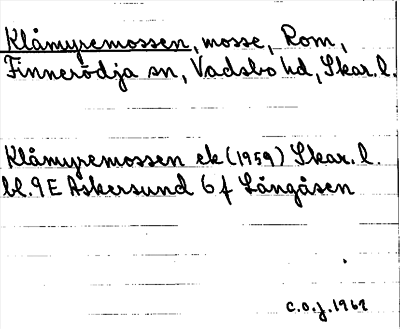 Klåmyremossen, mosse, Rom,
Finnerödja sn, Vadsbo hd, Skar. l.
Klåmyremossen ek (1959) Skar. l.
bl. 9E Askersund 6 f Långåsen
C.O.J. 1962